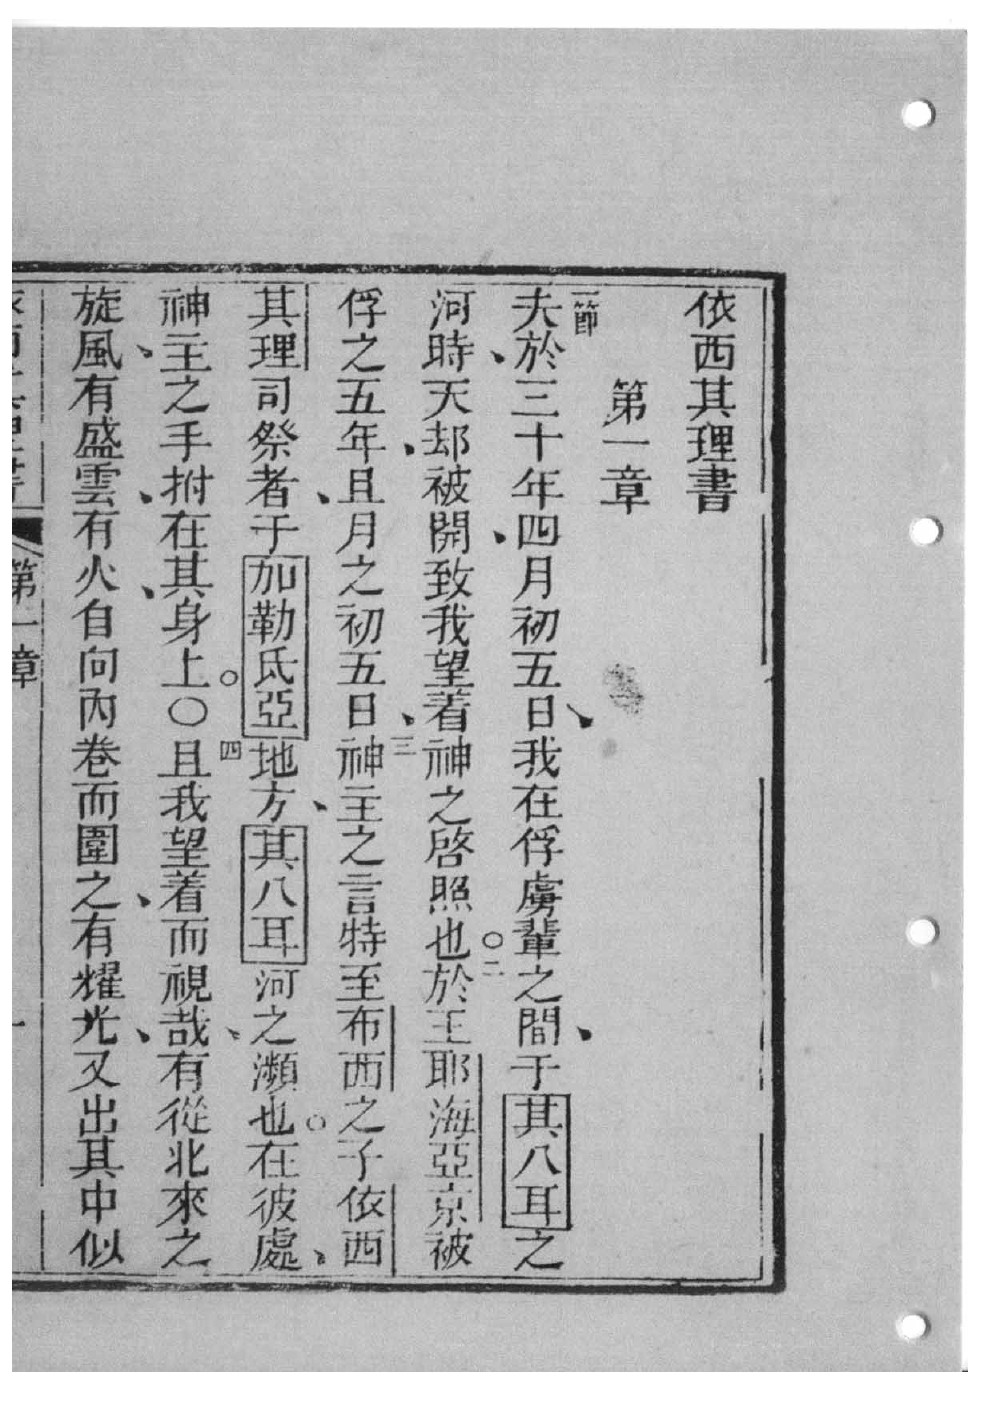 依西其理書
第一章
一節
夫於三十年四月初五日、我在俘虜輩之間、于其八耳之
河時、天却被開、致我望着神之啓照也。二於王耶海亞京被
俘之五年、且月之初五日、三神主之言特至布西之子依西
其理司祭者、于加勒氏亞地方、其八耳河之瀕也。在彼處、
神主之手拊在其身上。○四且我望着而視哉、有從北來之
旋風、有盛雲、有火、自向內卷而圍之、有耀光、又出其中似
第一章
一